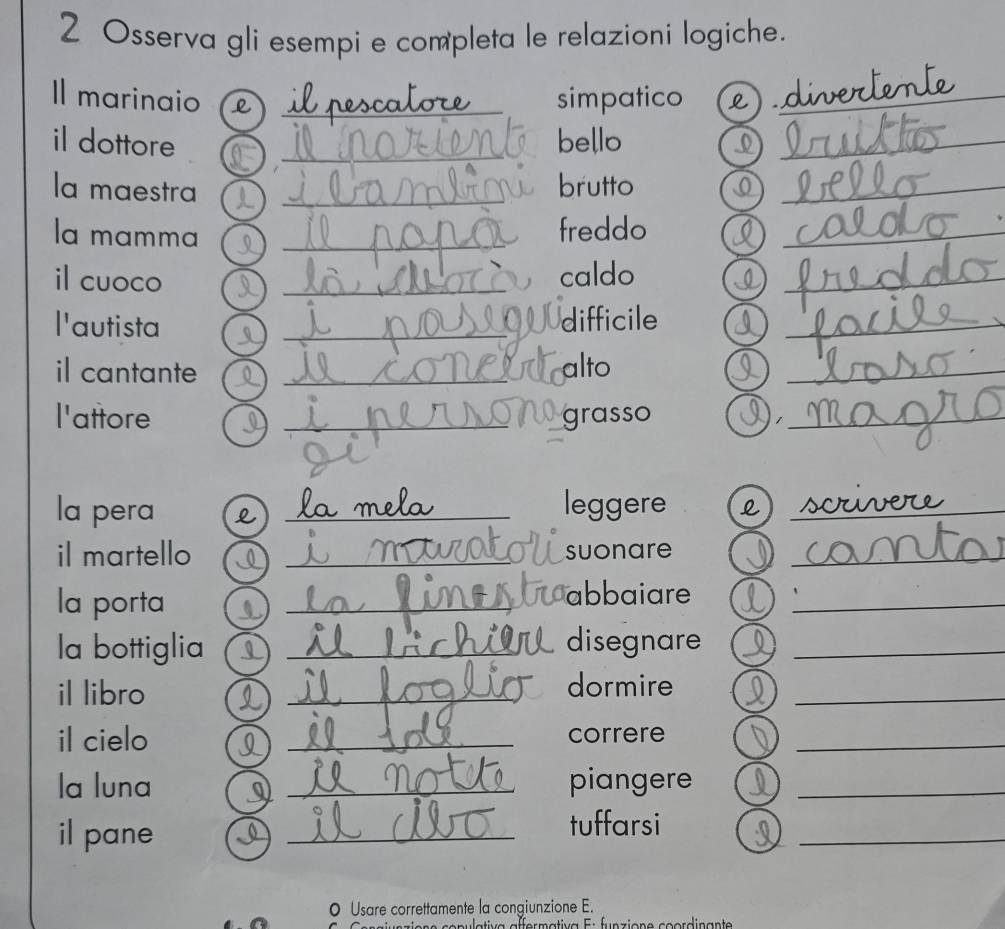 2 Osserva gli esempi e completa le relazioni logiche.
Il marinaio e il pescatore simpatico e divertente
il dottore e il paziente bello e brutto
la maestra e i bambini brutto e bello
la mamma e il papà freddo e caldo
il cuoco e caldo e freddo
l'autista e i difficile e facile
il cantante e il alto e basso
l'attore e i grasso e magro
la pera e la mela leggere e scrivere
il martello e i suonare e cantar
la porta e la finestra abbaiare e
la bottiglia e il bichiere disegnare e
il libro e il foglio dormire e
il cielo e il sole correre e
la luna e la piangere e
il pane e il cibo tuffarsi e
O Usare correttamente la congiunzione E.
Congiunzione copulativa affermativa E: funzione coordinante